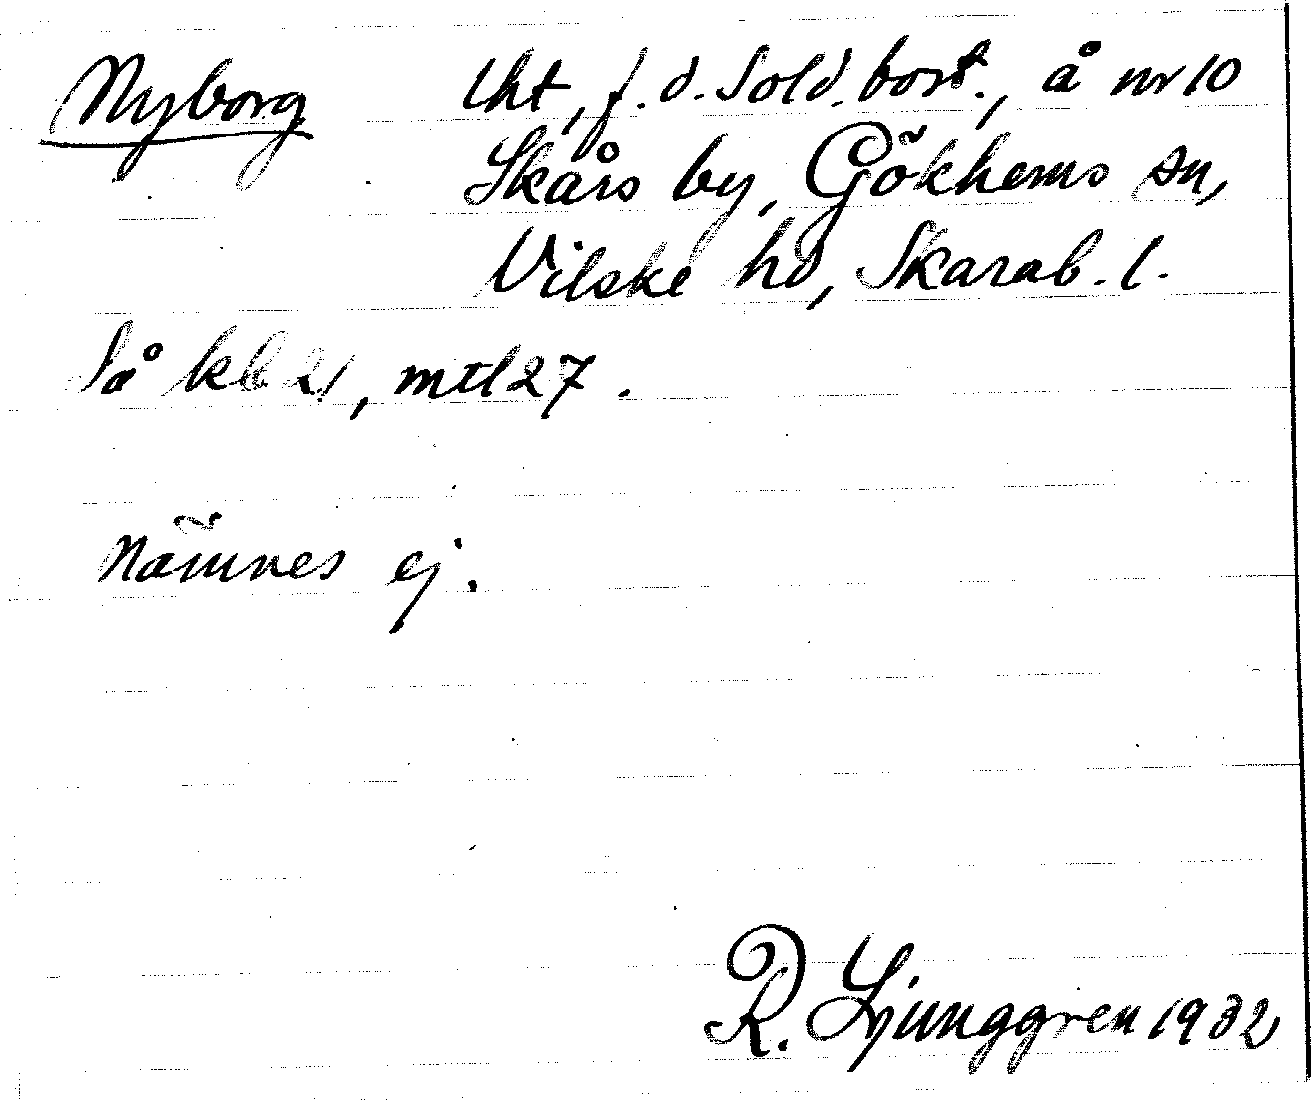 Nyborg lht, f.d. sold.bost., å nr 10
Skårs by, Gökhems sn,
Vilske hd, Skarab. l.
Så kb 21, mtl 27.
Nämnes ej.
R. Ljunggren 1932